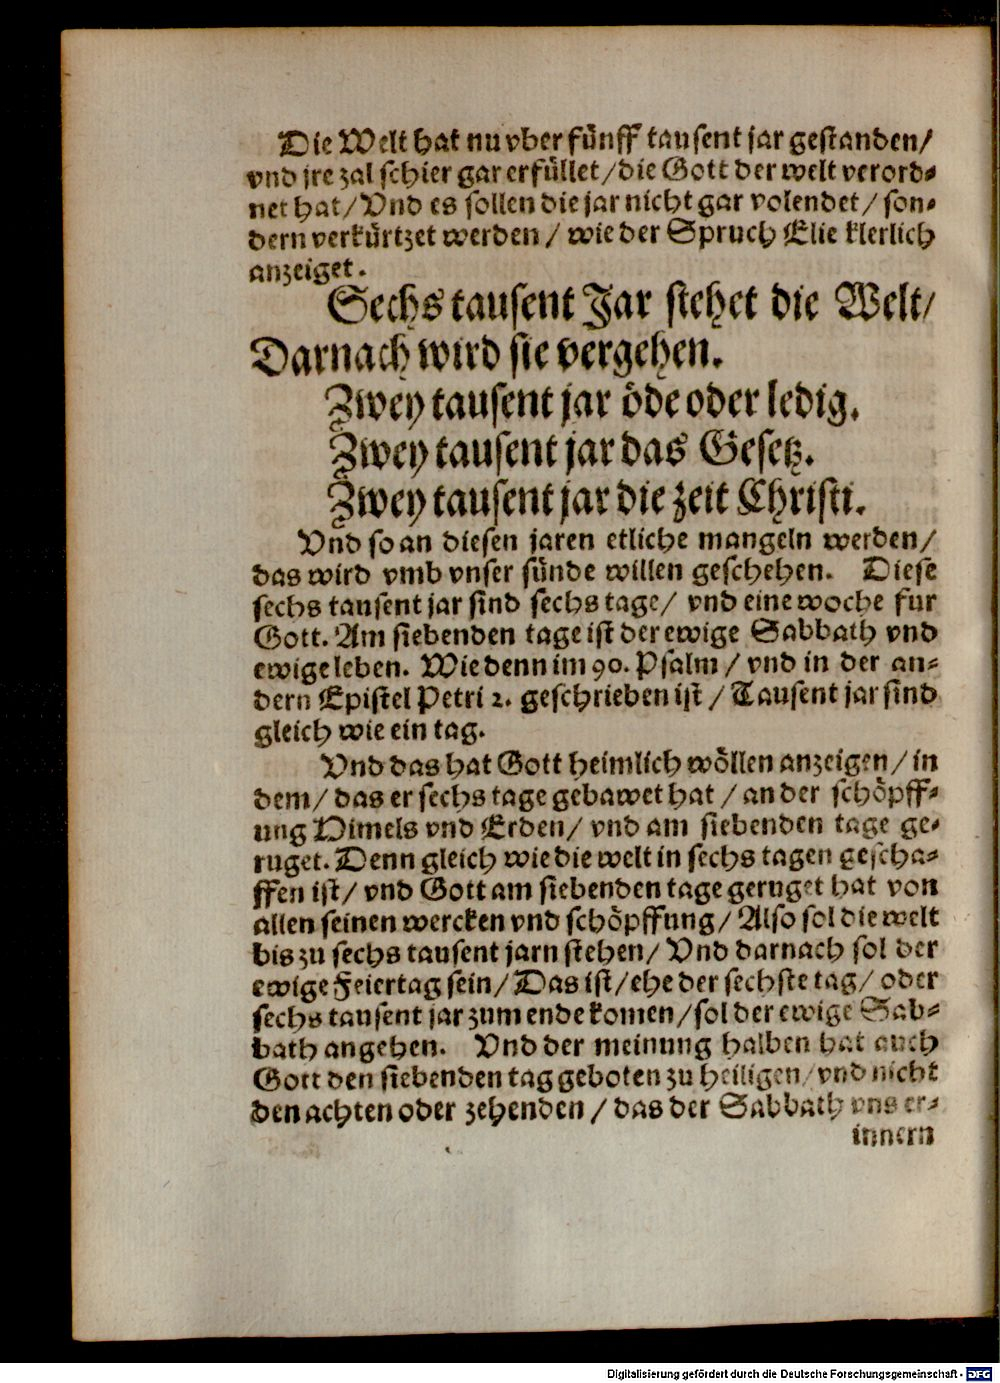 Die Welt hat nu vber fünff tausent jar gestanden/
vnd jre zal schier gar erfüllet/die Gott der welt verord⸗
net hat/Vnd es sollen die jar nicht gar volendet/ son⸗
dern verkürtzet werden / wie der Spruch Elie klerlich
anzeiget.
Sechs tausent Jar stehet die Welt/
Darnach wird sie vergehen.
Zwey tausent jar öde oder ledig.
Zwey tausent jar das Gesetz.
Zwey tausent jar die zeit Christi.
Vnd so an diesen jaren etliche mangeln werden/
das wird vmb vnser sünde willen geschehen. Diese
sechs tausent jar sind sechs tage/ vnd eine woche fur
Gott. Am siebenden tage ist der ewige Sabbath vnd
ewige leben. Wie denn im 90. Psalm / vnd in der an⸗
dern Epistel Petri 2. geschrieben ist / Tausent jar sind
gleich wie ein tag.
Vnd das hat Gott heimlich wöllen anzeigen/ in
dem/ das er sechs tage gebawet hat / an der schöpff⸗
ung Himels vnd Erden/ vnd am siebenden tage ge⸗
ruget. Denn gleich wie die welt in sechs tagen gescha⸗
ffen ist/ vnd Gott am siebenden tage geruget hat von
allen seinen wercken vnd schöpffung/ Also sol die welt
bis zu sechs tausent jarn stehen/ Vnd darnach sol der
ewige Feiertag sein/ Das ist/ ehe der sechste tag/ oder
sechs tausent jar zum ende komen/ sol der ewige Sab⸗
bath angehen. Vnd der meinung halben hat auch
Gott den siebenden tag geboten zu heiligen/ vnd nicht
den achten oder zehenden / das der Sabbath vns er⸗
innern
Digitalisierung gefördert durch die Deutsche Forschungsgemeinschaft - DFG